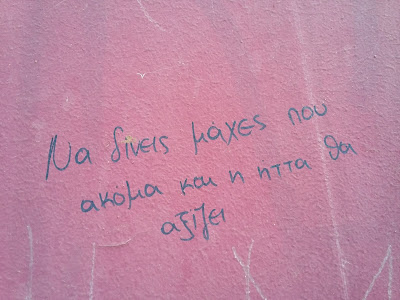 Να δίνεις μάχες που
ακόμα και η ήττα θα
αξίζει